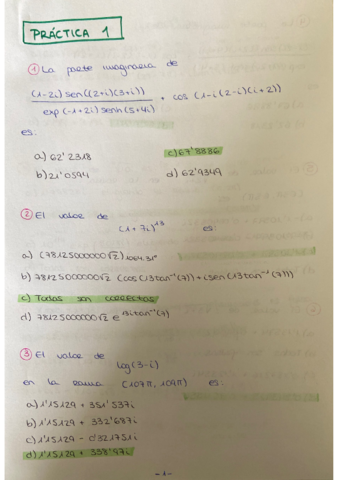 PRÁCTICA 1
① La parte imaginaria de
(1-2i) sen((2+i)(3+i))
exp (-1+2i) senh(5+4i) + cos (1-i(2-i)(i+2))
es:
a) 62'2318
c) 67'8886
b) 21'0594
d) 62'9349
② El valor de
(1+7i)¹³ es:
a) (78125000000√2)
b) 78125000000√2 (cos(13tan⁻¹(7))+isen(13tan⁻¹(7)))
c) Todas son correctas
d) 78125000000√2 e^13itan⁻¹(7)
③ El valor de
log(3-i)
en la rama (107π, 109π) es:
a) 1'15129 + 351'537i
b) 1'15129 + 332'687i
c) 1'15129 - 0'321751i
d) 1'15129 + 338'97i
-1-